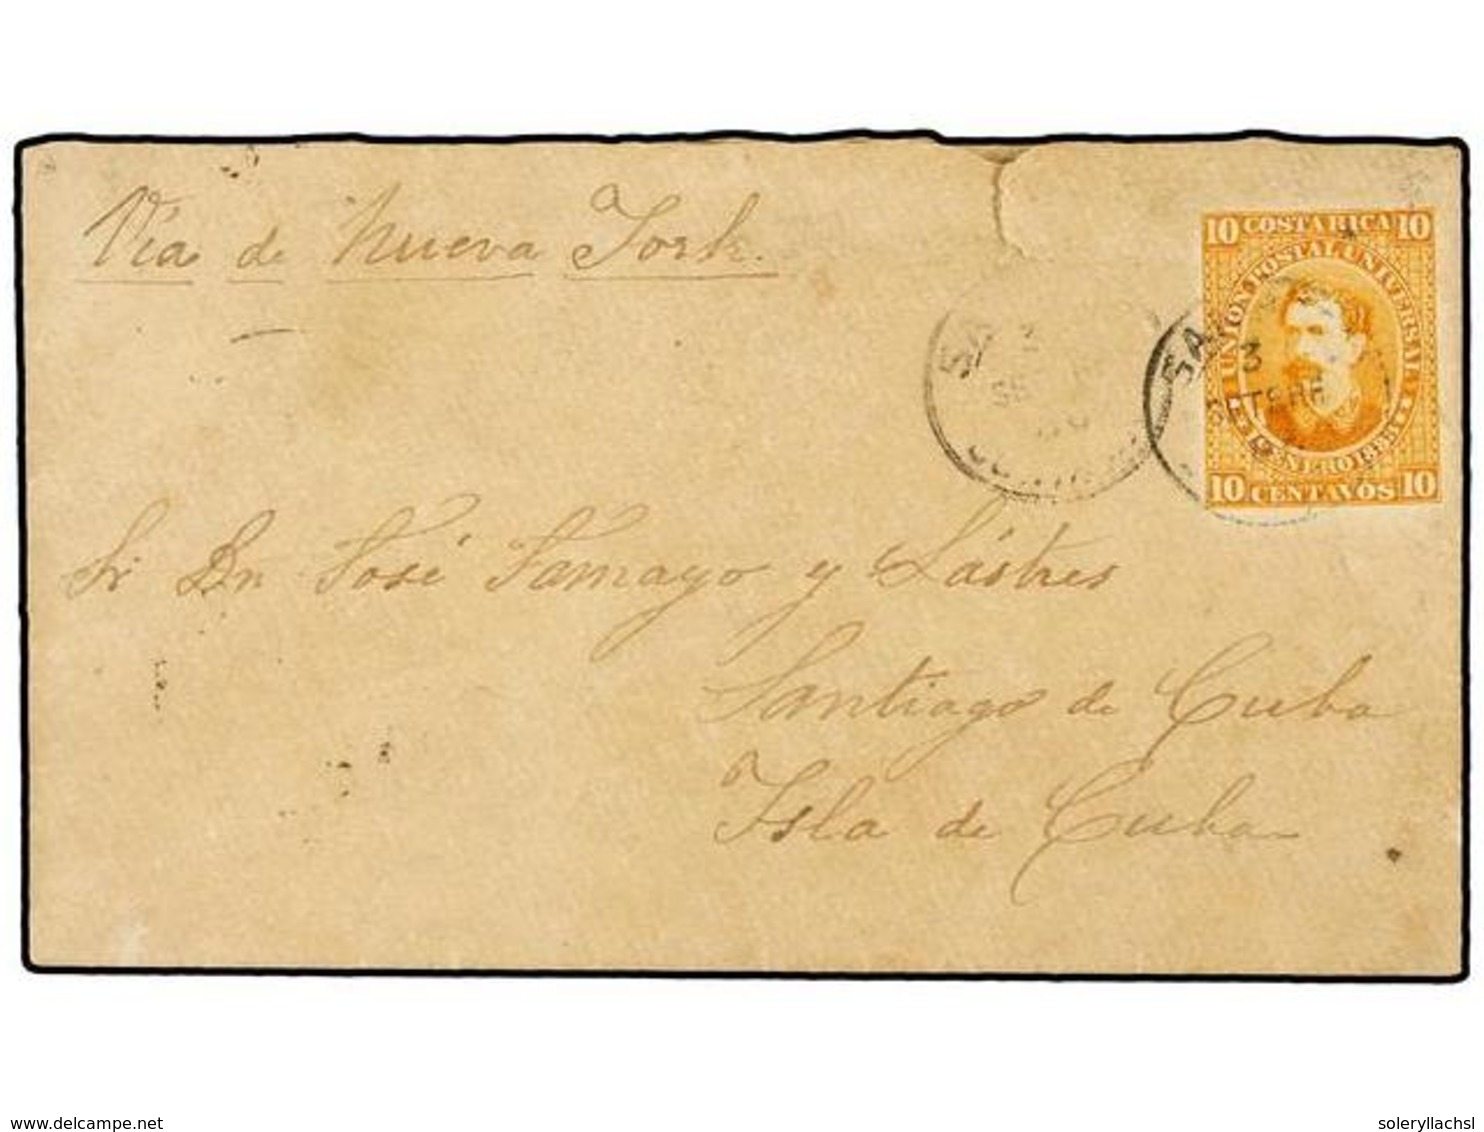 Via de Nueva York.
10 COSTA RICA 10
UNION POSTAL UNIVERSAL
ENERO 1883
10 CENTAVOS 10
3
SETBRE
Sr Dn José Tamayo y Lástres
Santiago de Cuba
Isla de Cuba
www.delcampe.net
soleryllachsl